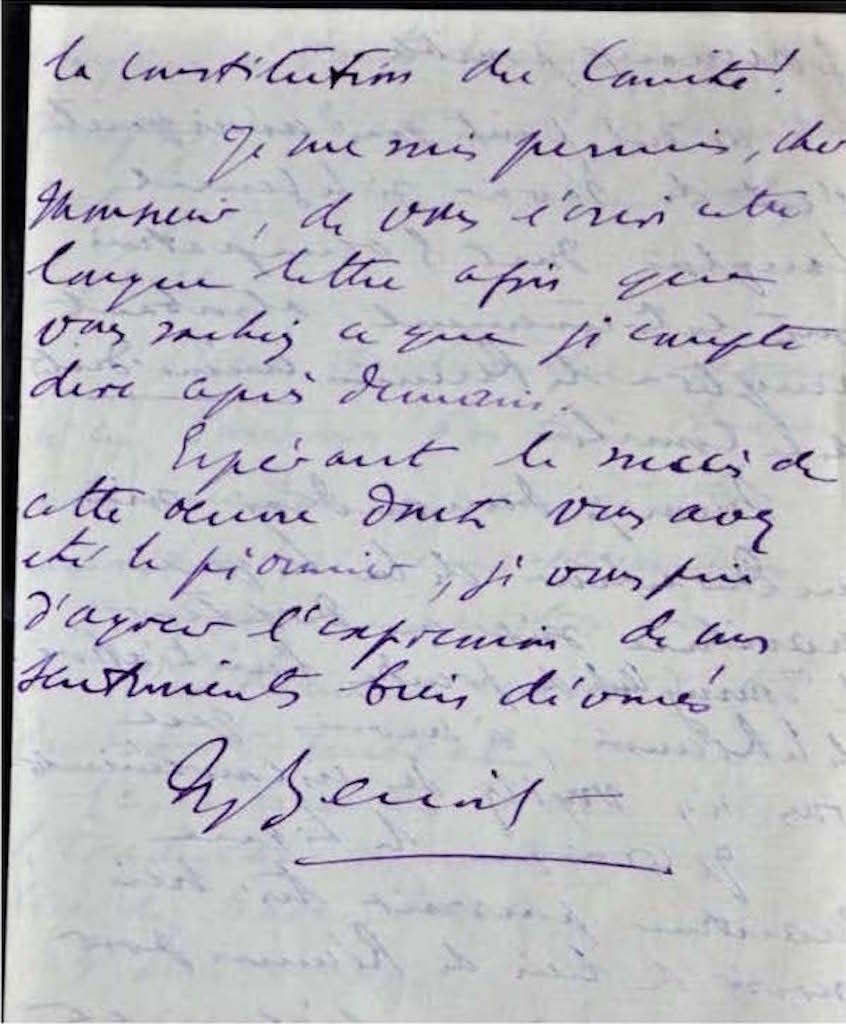 la constitution du Comité!
Je me suis permis, cher
Monsieur, de vous écrire cette
longue lettre afin que
vous sachiez ce que je compte
dire après demain.
Espérant le succès de
cette oeuvre dont vous avez
été le pionnier, je vous prie
d'agréer l'expression de mes
sentiments bien dévoués
Benoist